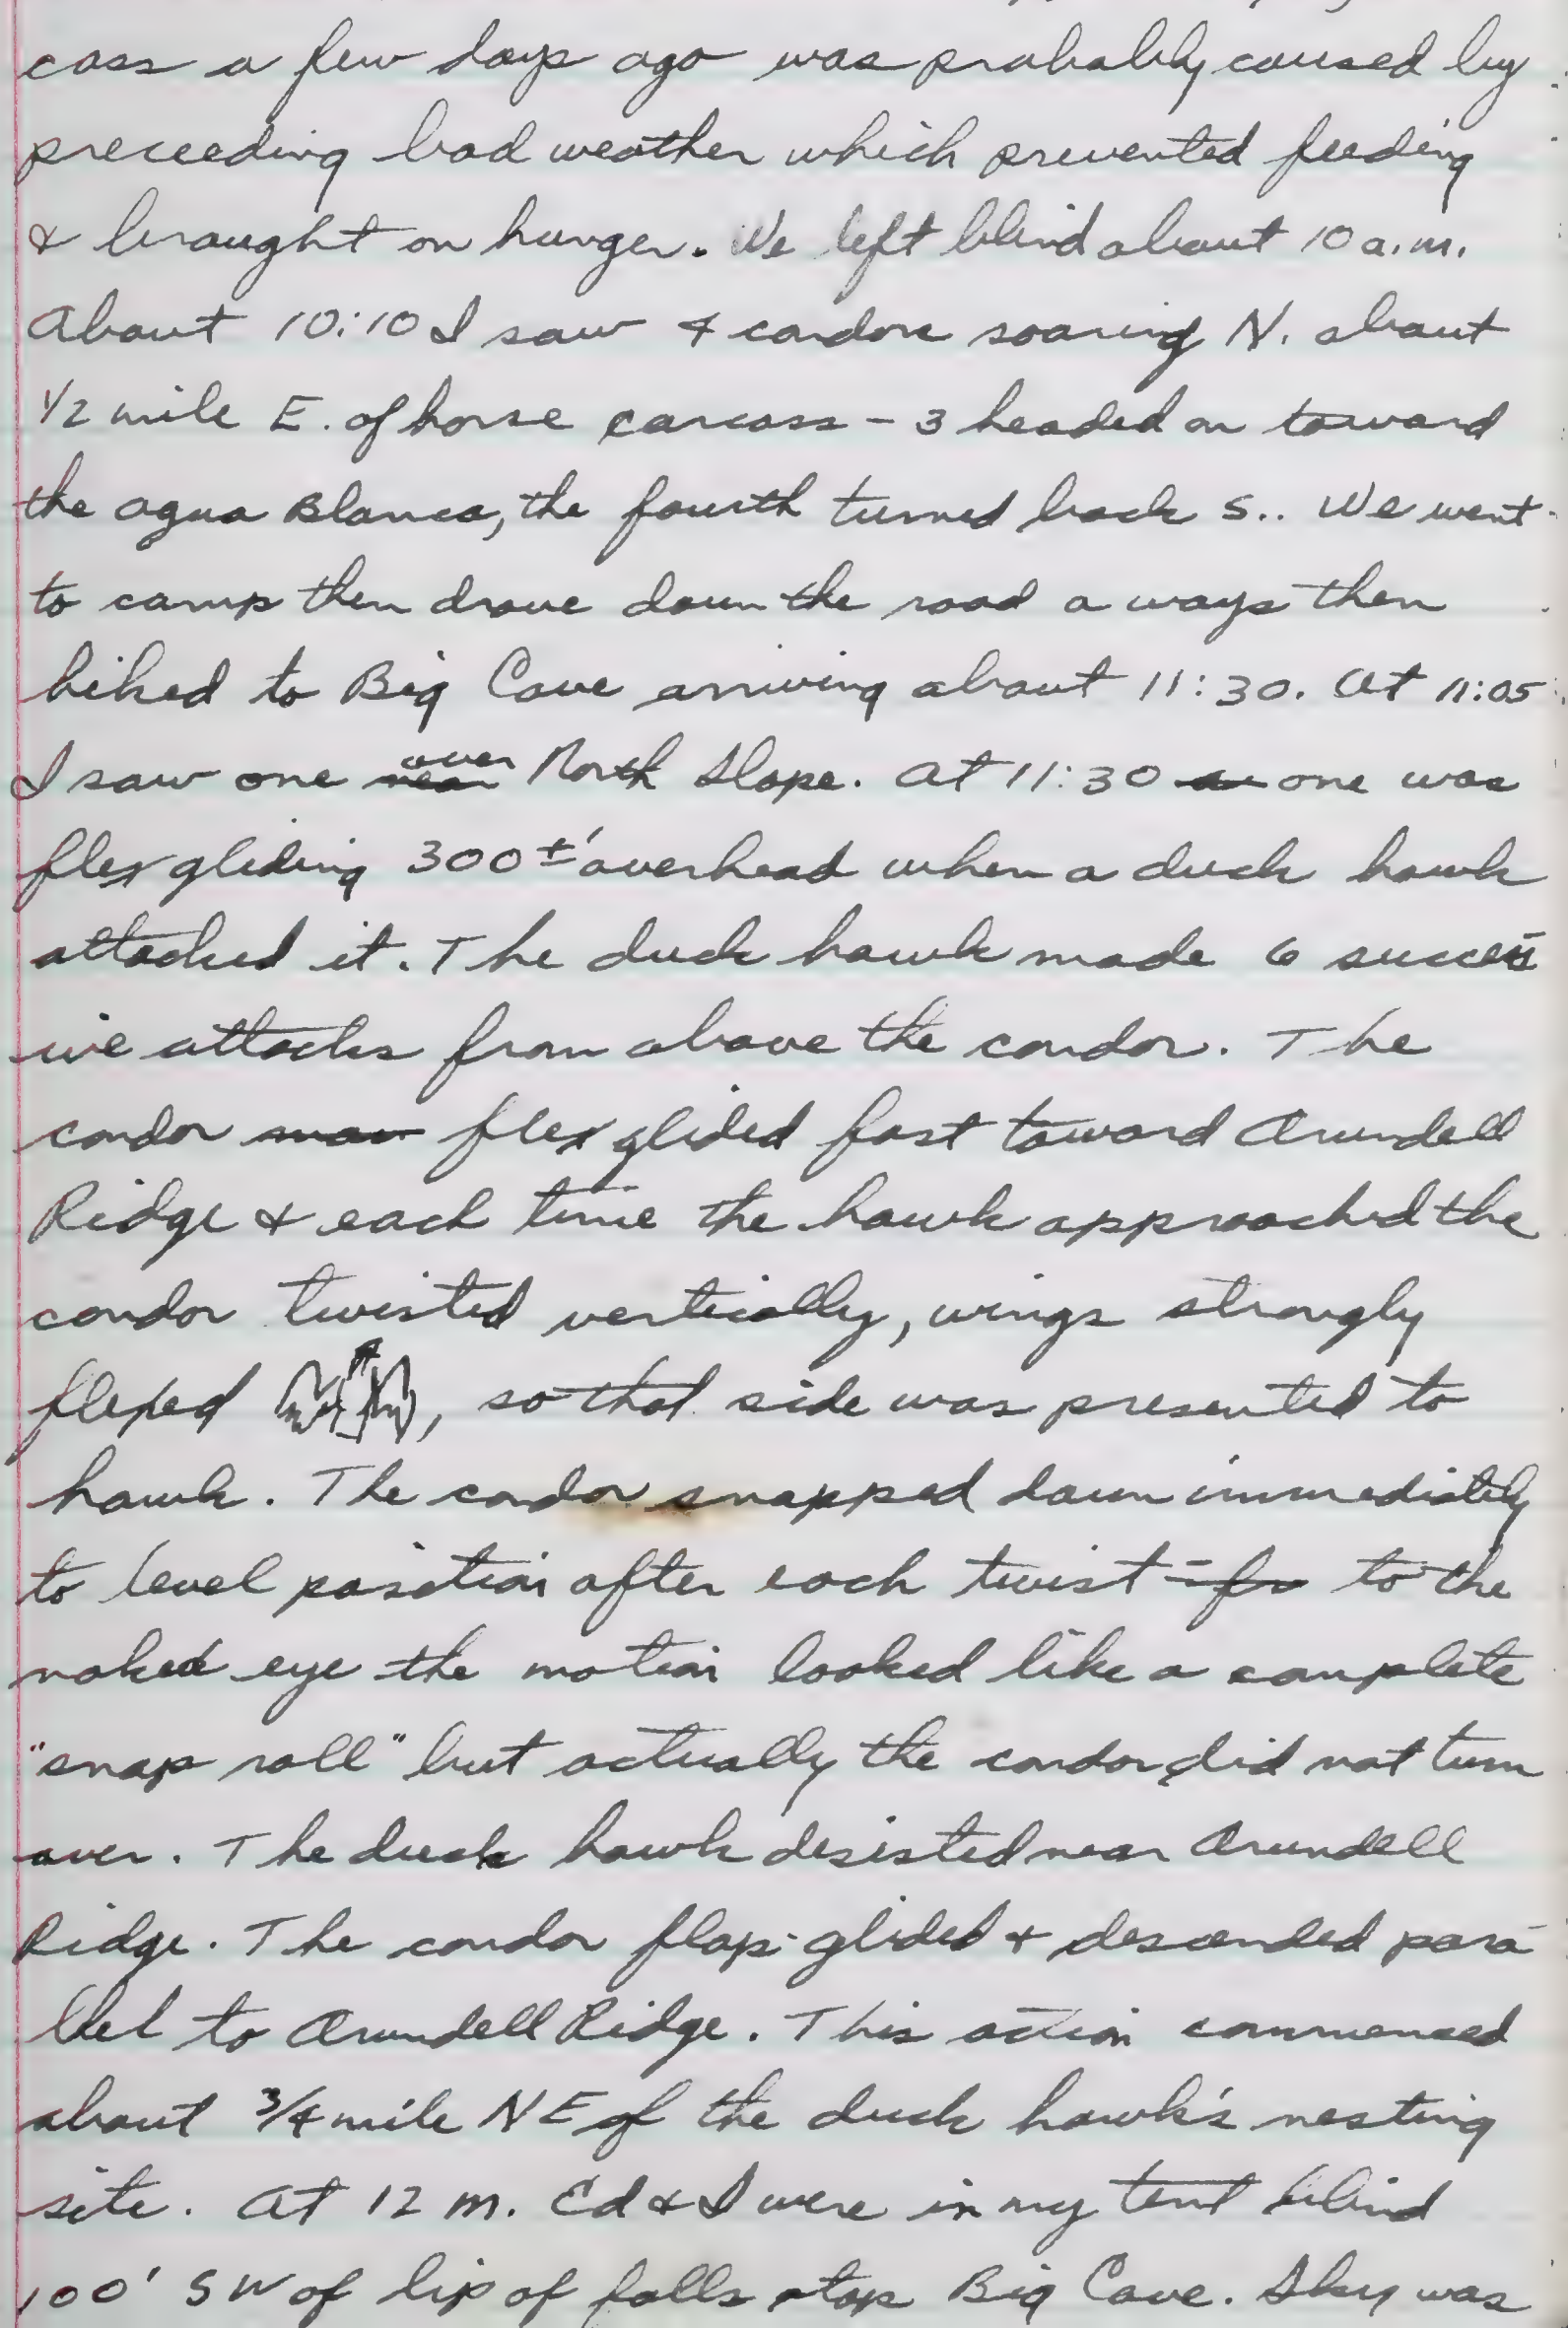 cass a few days ago was probably caused by
preceeding bad weather which prevented feeding
& brought on hunger. We left blind about 10 a.m.
About 10:10 I saw 4 condors soaring N. about
1/2 mile E. of horse carcass - 3 headed on toward
the Agua Blanca, the fourth turned back S.. We went
to camp then drove down the road a ways then
hiked to Big Cave arriving about 11:30. At 11:05
I saw one near over North Slope. At 11:30 one was
flex gliding 300±' overhead when a duck hawk
attacked it. The duck hawk made 6 success
ive attacks from above the condor. The
condor flex glided fast toward Arundell
Ridge & each time the hawk approached the
condor twisted vertically, wings strongly
flexed , so that side was presented to
hawk. The condor snapped down immediately
to level position after each twist - to the
naked eye the motion looked like a complete
"snap roll" but actually the condor did not turn
over. The duck hawk desisted near Arundell
Ridge. The condor flap-glided & descended para-
llel to Arundell Ridge. This action commenced
about 3/4 mile NE of the duck hawk's nesting
site. At 12 M. Ed & I were in my tent blind
100' SW of lip of falls atop Big Cave. Sky was